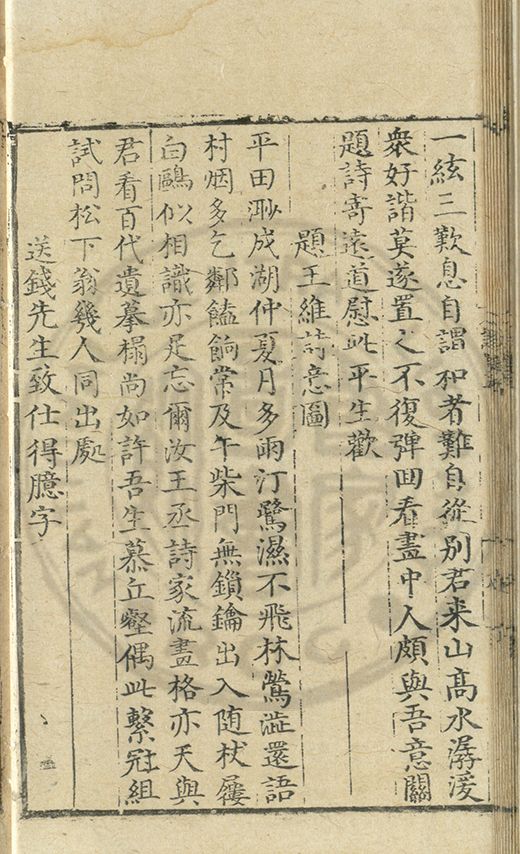 一絃三歎息自謂和者難自從别君来山高水潺湲
衆好諧莫遂置之不復彈囬看畫中人頗與吾意關
題詩寄遠道慰此平生歡
題王維詩意圖
平田渺成湖仲夏月多雨汀鷺濕不飛林鶯澁還語
村烟多乞鄰饁餉常及午柴門無鎖鑰出入随杖屨
白鷗似相識亦足忘爾汝王丞詩家流畫格亦天與
君看百代遺摹榻尚如許吾生慕丘壑偶此繋冠組
試問松下翁幾人同出處
送錢先生致仕得臆字